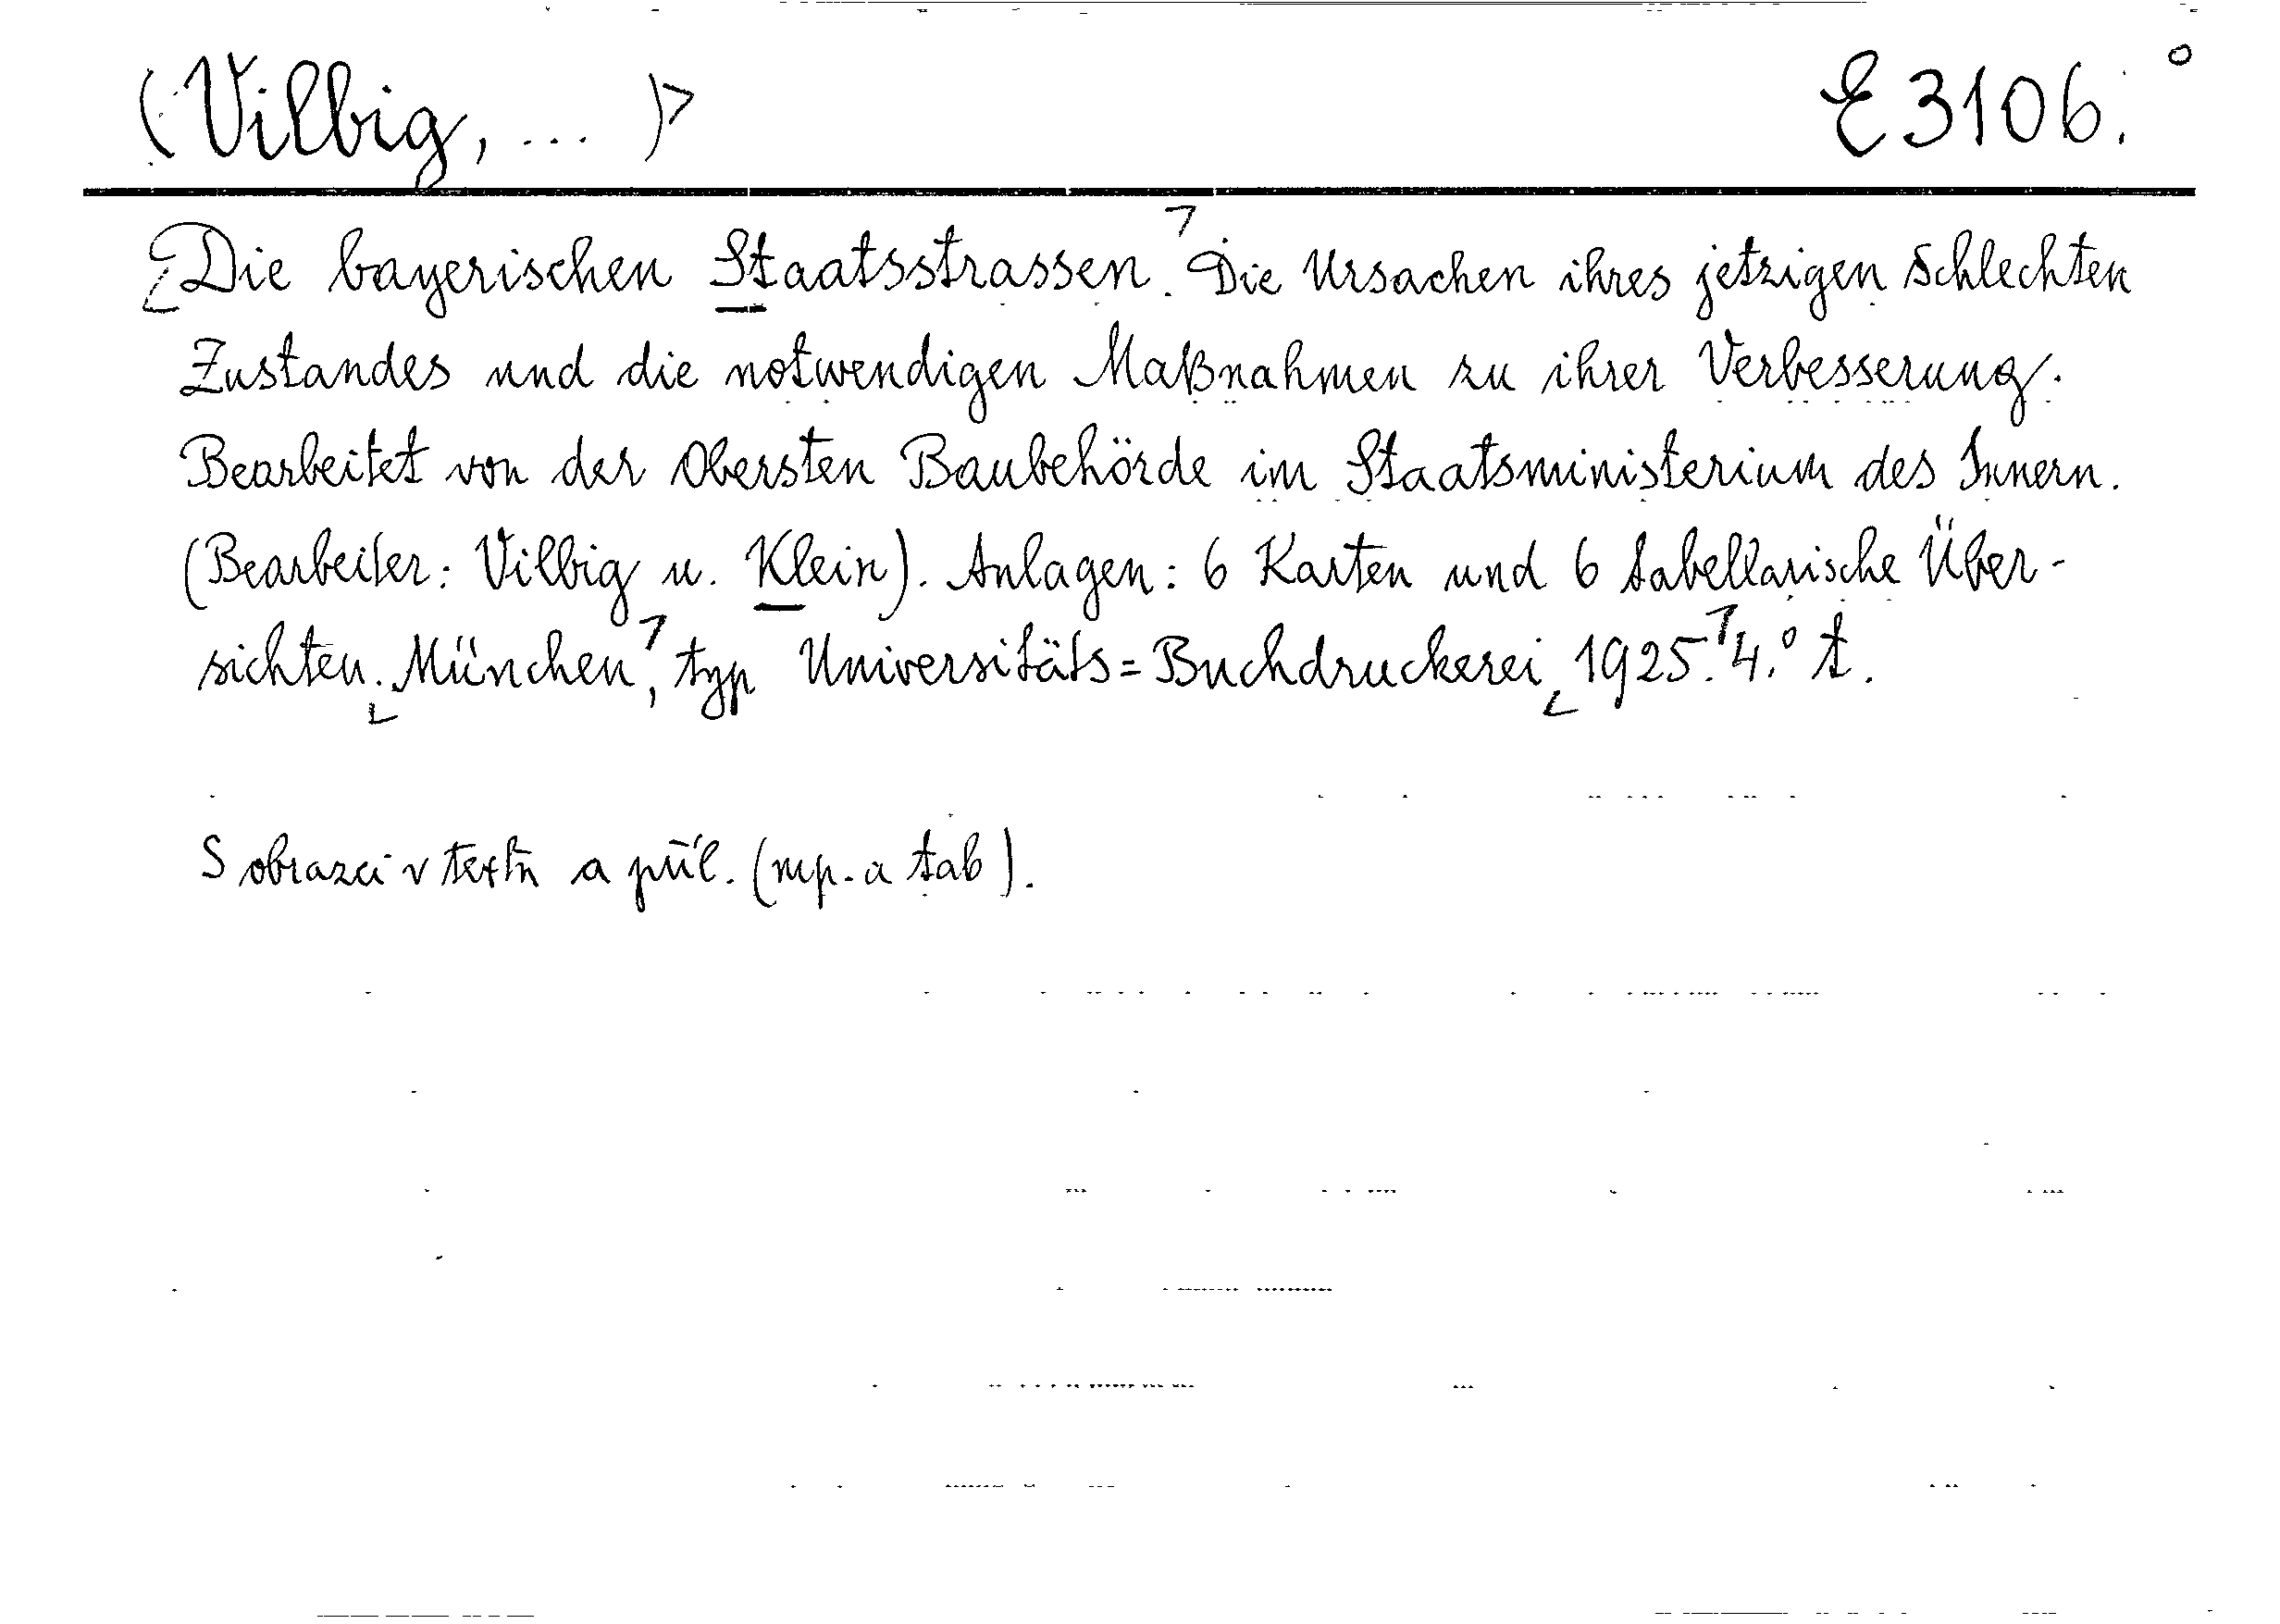 (Vilbig, ... ) E 3106.
Die bayerischen Staatsstrassen. Die Ursachen ihres jetzigen schlechten
Zustandes und die notwendigen Maßnahmen zu ihrer Verbesserung.
Bearbeitet von der Obersten Baubehörde im Staatsministerium des Innern.
(Bearbeiter: Vilbig u. Klein). Anlagen: 6 Karten und 6 tabellarische Über-
sichten. München, typ Universitäts=Buchdruckerei, 1925. 4.° t.
S obrazci v textu a příl. (mp. a tab).